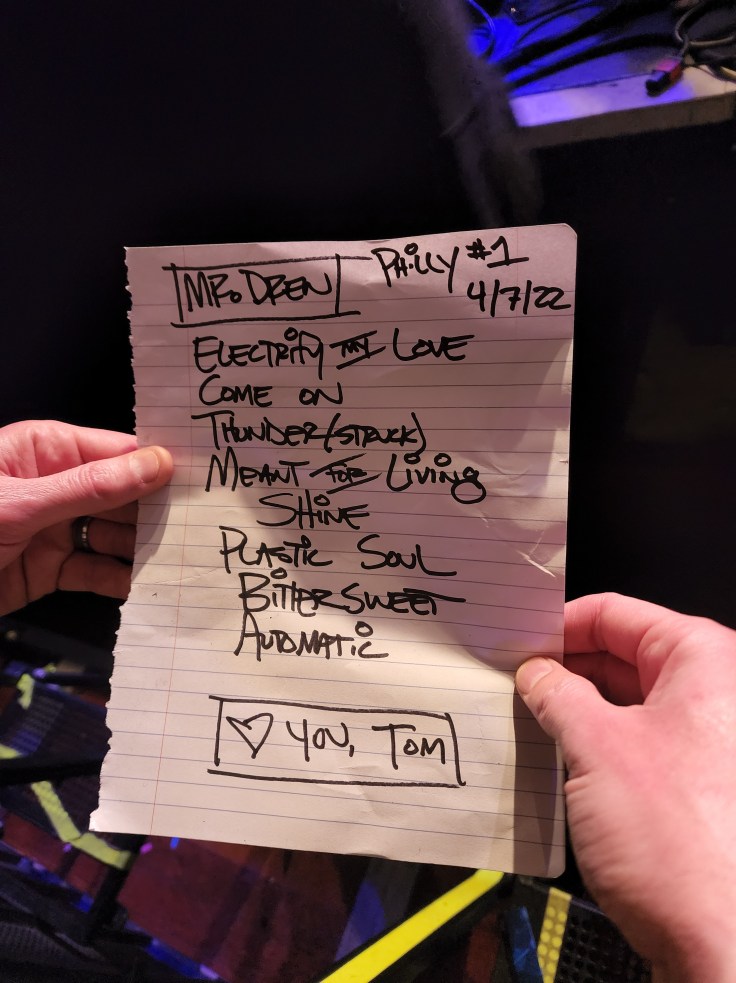 MR. DREN
PHILLY #1
4/7/22
ELECTRIFY MY LOVE
COME ON
THUNDER(STRUCK)
MEANT FOR LIVING
SHINE
PLASTIC SOUL
BITTERSWEET
AUTOMATIC
♡ YOU, TOM